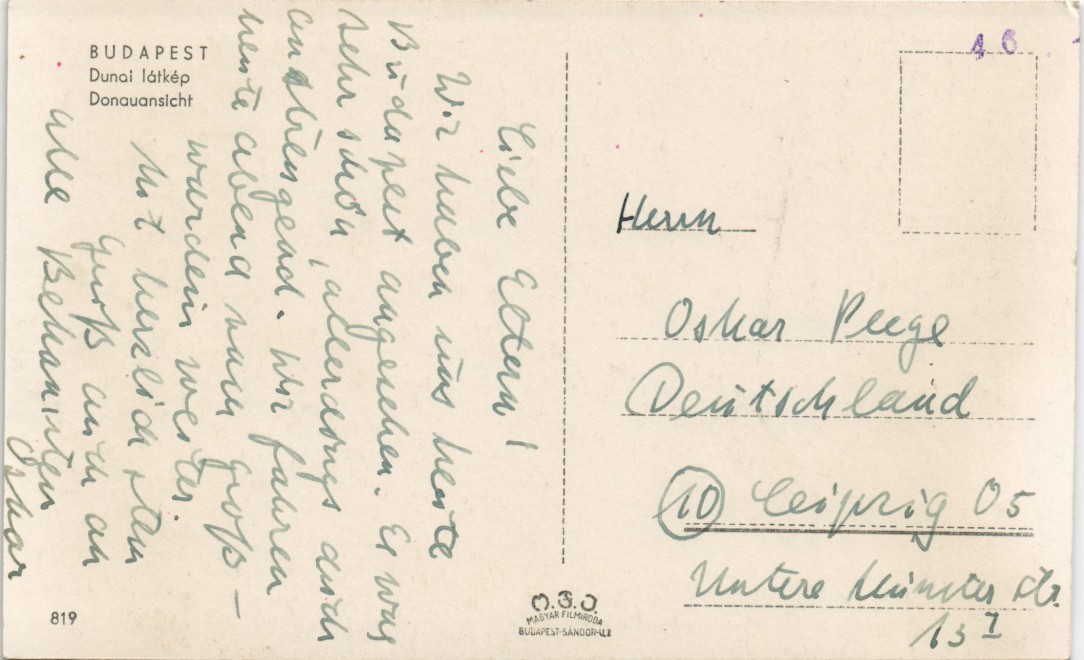 BUDAPEST
Dunai látkép
Donauansicht
Liebe Eltern!
Wir haben uns heute
Budapest angesehen. Es war
sehr schön, allerdings auch
anstrengend. Wir fahren
heute abend nach Groß-
wardein weiter.
Mit herzlichsten
Gruß auch an
alle Bekannten
Oskar
819
M.F.I.
MAGYAR FILMIRODA
BUDAPEST-SÁNDOR-U.2
16
Herrn
Oskar Peege
Deutschland
(10) Leipzig O5
Untere Münster Str.
13 I